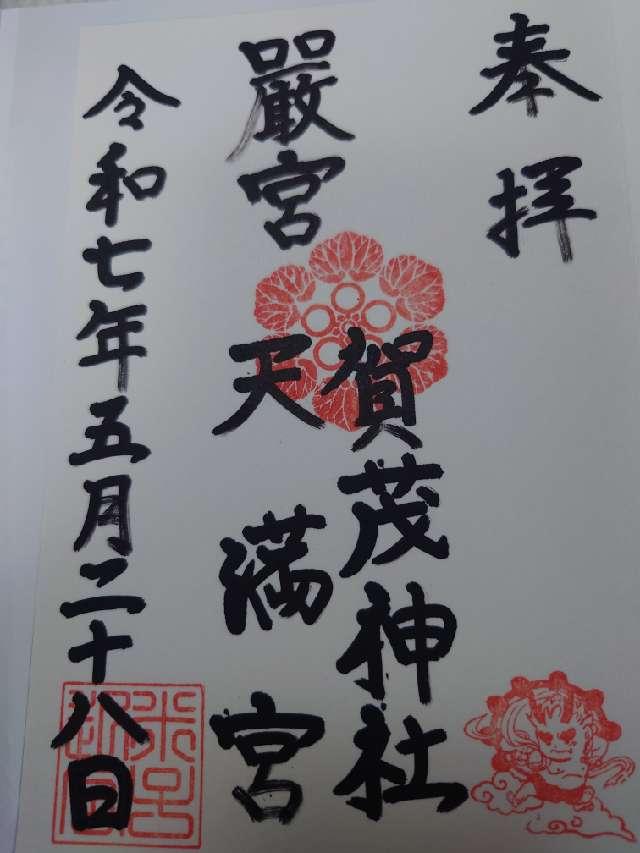 奉拝
嚴宮
賀茂神社
天満宮
令和七年五月二十八日